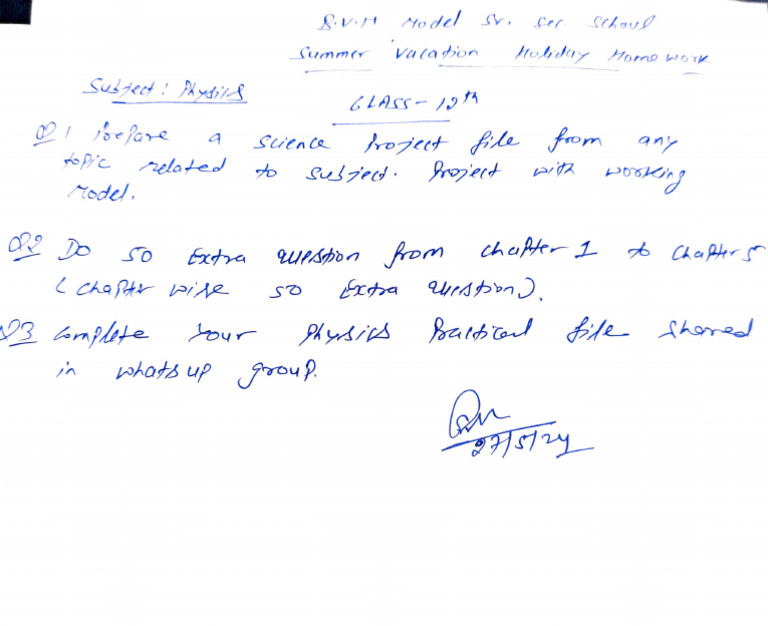 B.V.M Model Sr. Sec School
Summer Vacation Holiday Home work
Subject: Physics
CLASS - 12th
Q1 Prepare a science Project file from any
topic related to subject. Project with working
Model.
Q2 Do 50 Extra question from chapter 1 to chapter 5
(chapter wise 50 Extra question).
Q3 Complete your Physics Practical file shared
in whatsup group.
27/5/24